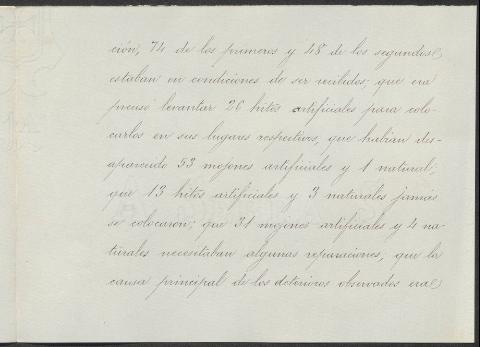 ción, 74 de los primeros y 48 de los segundos
estaban en condiciones de ser recibidos; que era
preciso levantar 26 hitos artificiales para colo-
carlos en sus lugares respectivos, que habían des-
aparecido 53 mojones artificiales y 1 natural;
que 13 hitos artificiales y 3 naturales jamás
se colocaron; que 31 mojones artificiales y 4 na-
turales necesitaban algunas reparaciones; que la
causa principal de los deterioros observados era